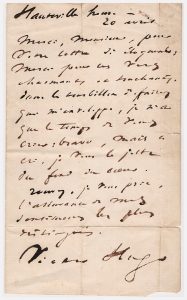 Hauteville house
20 avril
Merci, Monsieur, pour
votre lettre si
Merci pour ces vers
charmants et touchants.
dans le tourbillon d'affaires
qui m'enveloppe, je n'ai
que le temps de vous
crier: bravo, mais ce
cri, je vous le jette
du fond du cœur.
je vous prie,
l'assurance de mes
sentiments les plus
distingués.
Victor Hugo